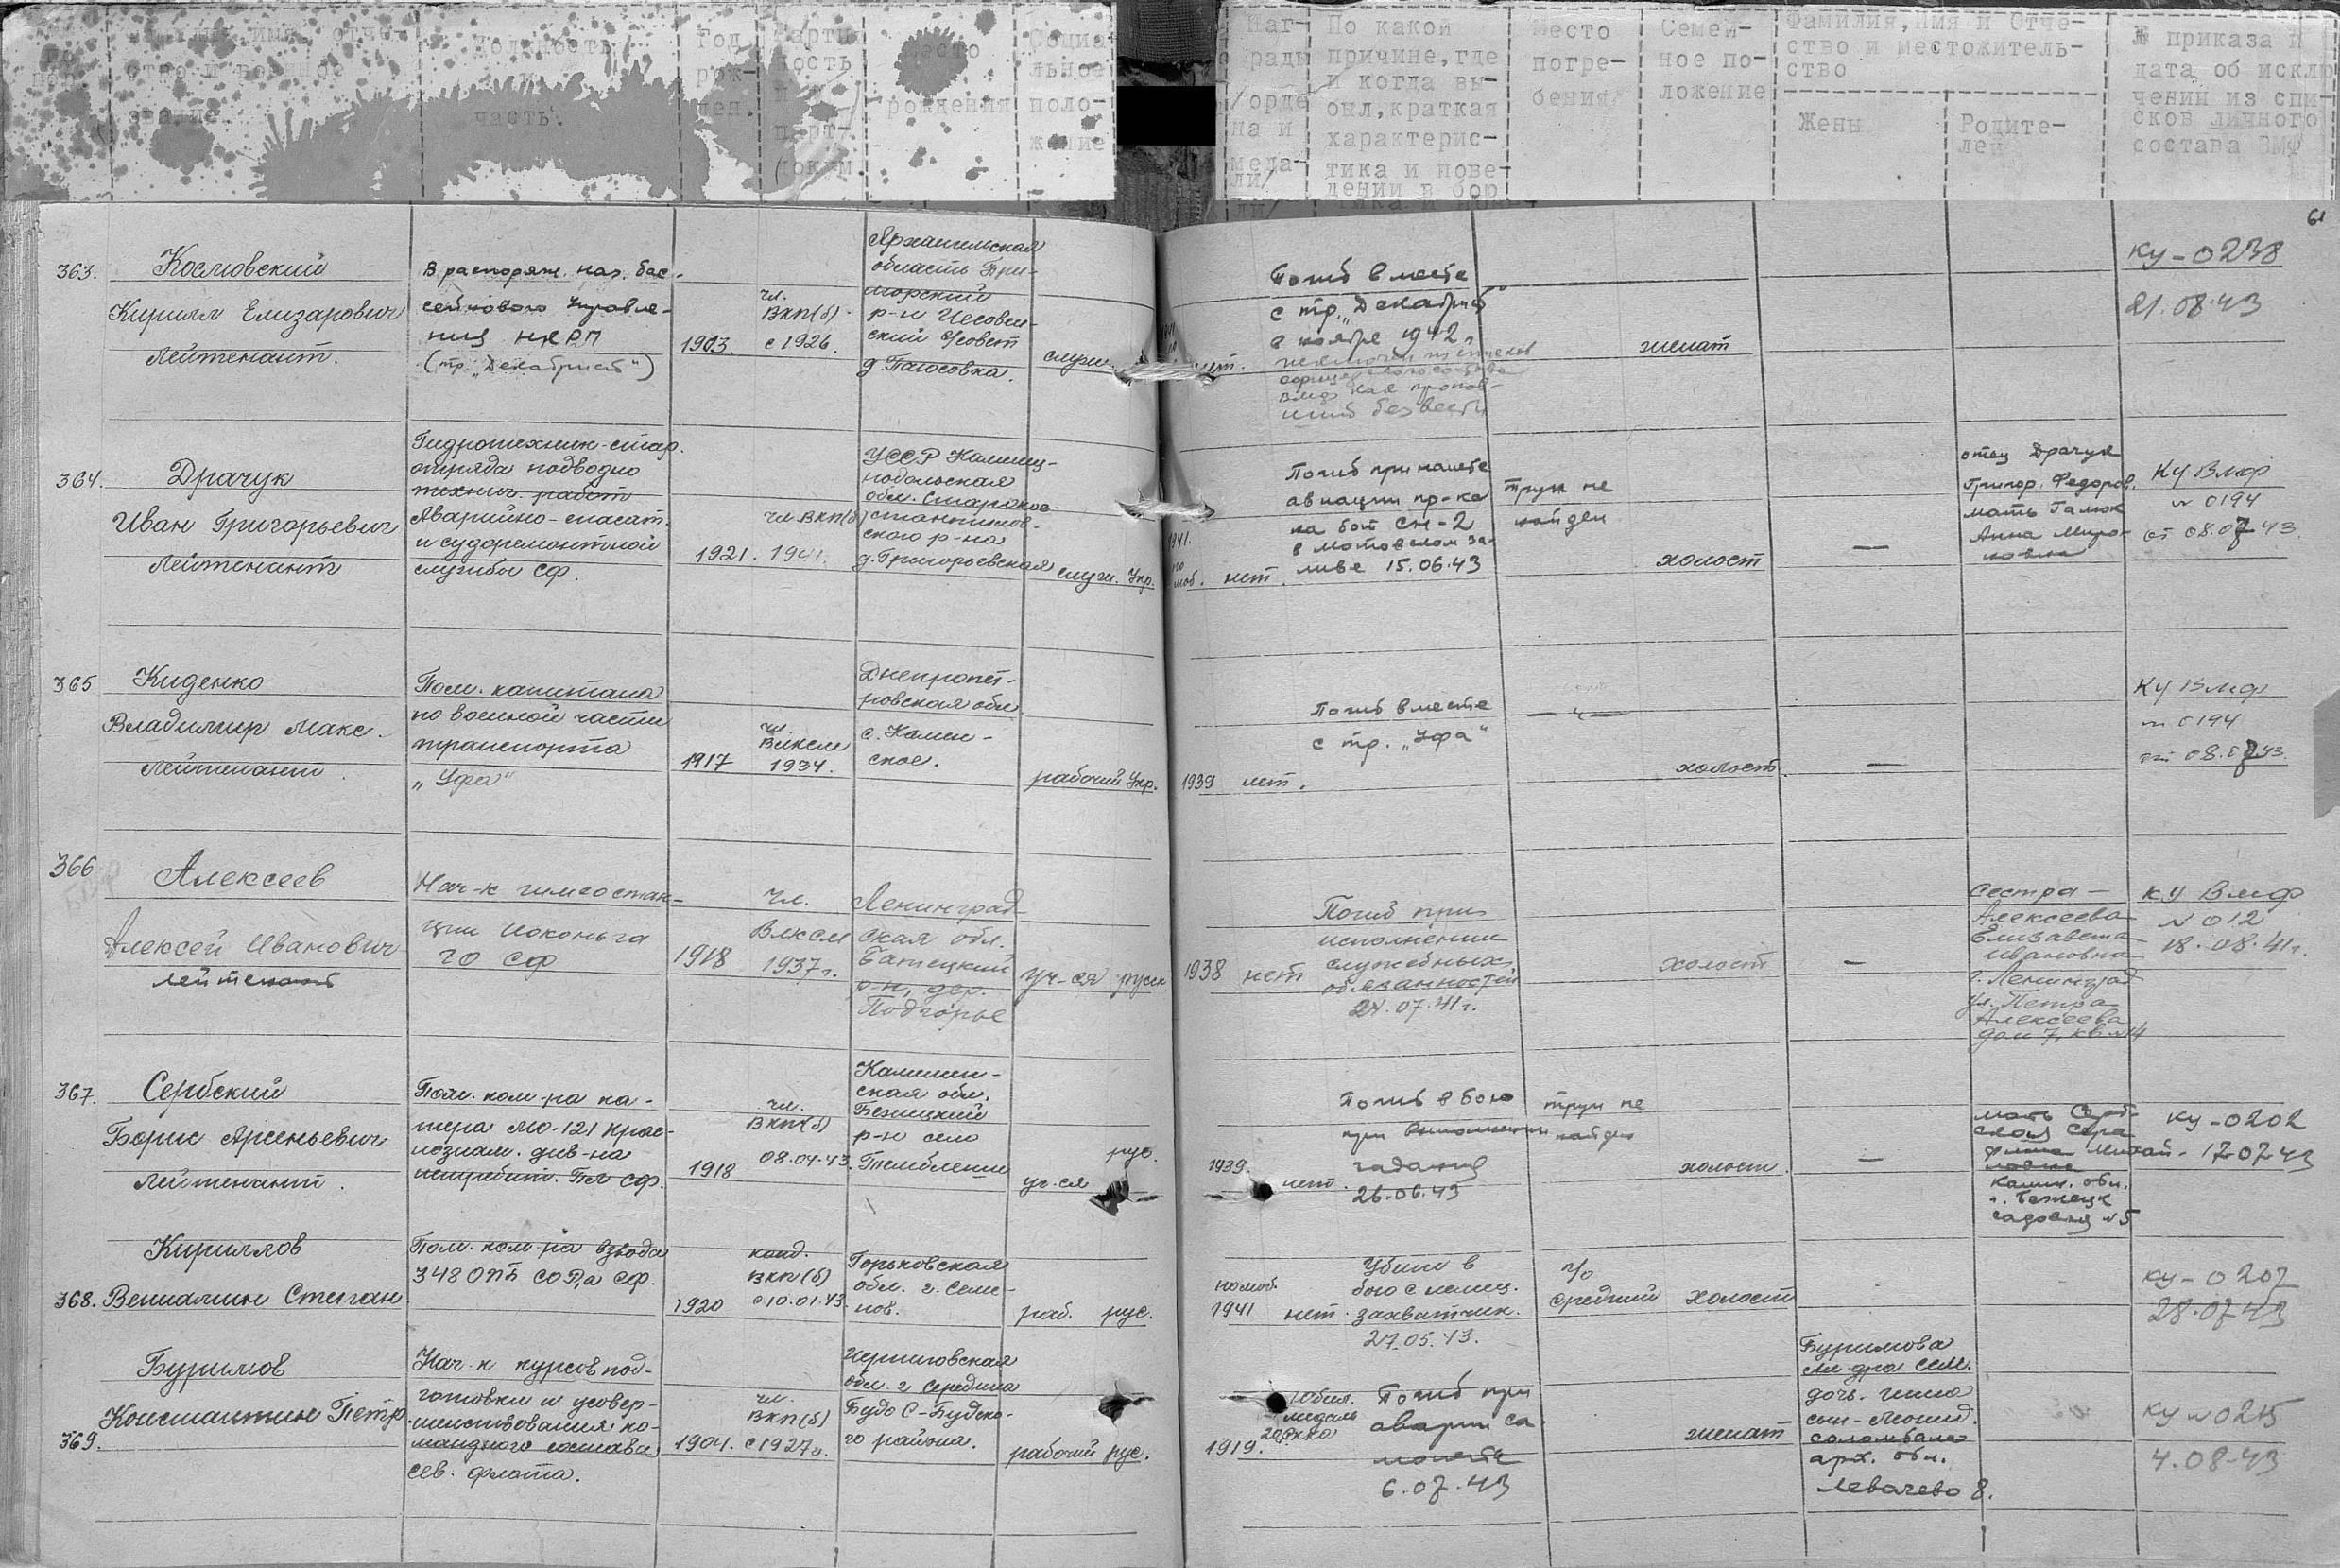 По какой
причине, где
и когда вы-
был, краткая
характерис-
тика и пове-
дении в бою
Место
погре-
бения
Семей-
ное по-
ложение
Фамилия, Имя и Отче-
ство и местожитель-
ство
Жены
Родите-
лей
№ приказа и
дата об исклю
чении из спи-
сков личного
состава ВМФ
61
363.
Космовский
Кирилл Елизарович
Лейтенант.
В распоряж. нач. бас-
сейнового Управле-
ния НКРП
(тр. „Декабрист")
1903.
чл.
ВКП(б)
с 1926.
Архангельская
область При-
морский
р-н
с/совет
служ.
Погиб вместе
с тр. „Декабрист"
в ноябре 1942 г.
женат
КУ-0238
21.08.43
364.
Драчук
Иван Григорьевич
Лейтенант
Гидротехник-стар.
отряда подводно
технич. работ
Аварийно-спасат.
и судоремонтной
службы СФ.
1921.
чл ВКП(б)
1941.
УССР Каменец-
подольская
обл. Старокон-
стантинов-
ского р-на
д. Григорьевская
служ. Укр.
1941.
по
моб.
нет.
Погиб при налете
авиации пр-ка
на бот СН-2
в Мотовском за-
ливе 15.06.43
труп не
найден
холост
—
отец Драчук
Григор. Федоров.
мать
Анна Миро-
новна
КУ ВМФ
№ 0194
от 08.07.43.
365
Киденко
Владимир Макс.
Лейтенант.
Пом. капитана
по военной части
транспорта
„Уфа"
1917
чл.
ВЛКСМ
1934.
Днепропет-
ровская обл.
с. Камен-
ское.
рабочий Укр.
1939
нет.
Погиб вместе
с тр. „Уфа"
— " —
холост.
—
КУ ВМФ
№ 0194
от 08.07.43.
366
Алексеев
Алексей Иванович
лейтенант
Нач-к гимеостан-
ции Иоконьга
ГО СФ
1918
чл.
ВЛКСМ
1937 г.
Ленинград-
ская обл.
Батецкий
р-н, дер.
Подгорье
уч-ся русск
1938
нет
Погиб при
исполнении
служебных
обязанностей
24.07.41 г.
холост
—
Сестра —
Алексеева
Елизавета
Ивановна
г. Ленинград
ул. Петра
Алексеева
дом 7, кв №14
КУ ВМФ
№ 012
18.08.41 г.
367.
Сербский
Борис Арсеньевич
Лейтенант.
Пом. ком-ра ка-
тера МО-121 Крас-
нознам. див-на
истребит. ПЛ СФ.
1918
чл.
ВКП(б)
08.04.43.
Калинин-
ская обл.
Бежицкий
р-н село
уч-ся
рус.
1939.
нет.
Погиб в бою
при выполнении
задания
26.06.43
труп не
найден
холост.
—
мать Серб-
ская Сера
фима Михай-
ловна
Калин. обл.
г. Бежецк
садовая №5
КУ-0202
17.07.43
368.
Кириллов
Вениамин Степан
Пом. ком-ра взвода
348 ОПБ СОРа СФ.
1920
канд.
ВКП(б)
с 10.01.43.
Горьковская
обл. г. Семе-
нов.
раб. рус.
по моб.
1941
нет.
Убит в
бою с немец.
захватчик.
27.05.43.
п/о
средний
холост
КУ-0207
28.07.43
369.
Буримов
Константин Петр.
Нач-к курсов под-
готовки и усовер-
шенствования ко-
мандного состава
Сев. флота.
1904.
чл.
ВКП(б)
с 1927 г.
Черниговская
обл. г Середина
Буда С-Будско-
го района.
рабочий рус.
1919.
Юбил.
медаль
20 РККА
Погиб при
аварии са
молета
6.07.43
женат
Буримова
Ал-дра Сем.
дочь-Нина
сын-Леонид.
Соломбала
арх. обл.
Левачево 8.
КУ №0215
4.08.43